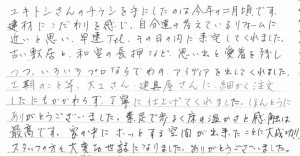 ユキトシさんのチラシを手にしたのは今年の二月頃です。
建材にこだわりを感じ、自分達の考えているリフォームに
近いと思い、早速Tel、その日の内に来宅してくれました。
古い敷居と、和室の長押など、思い出と愛着を残し
つつ、いろいろプロならでわのアイディアを出してくれました。
工期のこと等、大工さん・建具屋さんに、細かく注文
したにもかかわらず、丁寧に仕上げてくれました。ほんとうに
ありがとうございました。素足で歩くと床の温かさと感触は
最高です。家の中にホッとする空間が出来たことに大成功!
スタッフの方々大変お世話になりました。ありがとうございました。